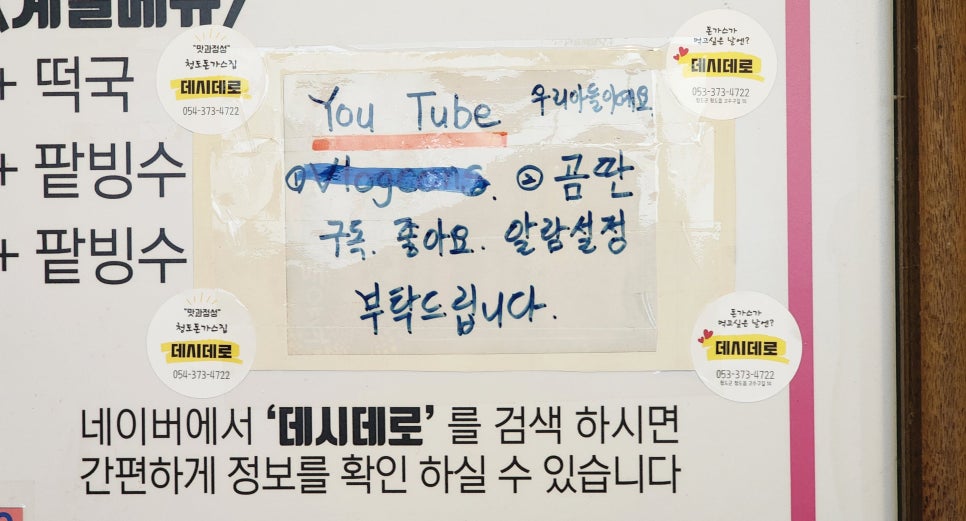 + 떡국
+ 팥빙수
+ 팥빙수
"맛과정성"
청도돈가스집
데시데로
054-373-4722
돈가스가
먹고싶은 날엔?
데시데로
053-373-4722
청도군 청도읍 고수구길 10
You Tube 우리아들이예요
① Vlogsons. ② 곰딴
구독. 좋아요. 알람설정
부탁드립니다.
"맛과정성"
청도돈가스집
데시데로
054-373-4722
돈가스가
먹고싶은 날엔?
데시데로
053-373-4722
네이버에서 '데시데로' 를 검색 하시면
간편하게 정보를 확인 하실 수 있습니다